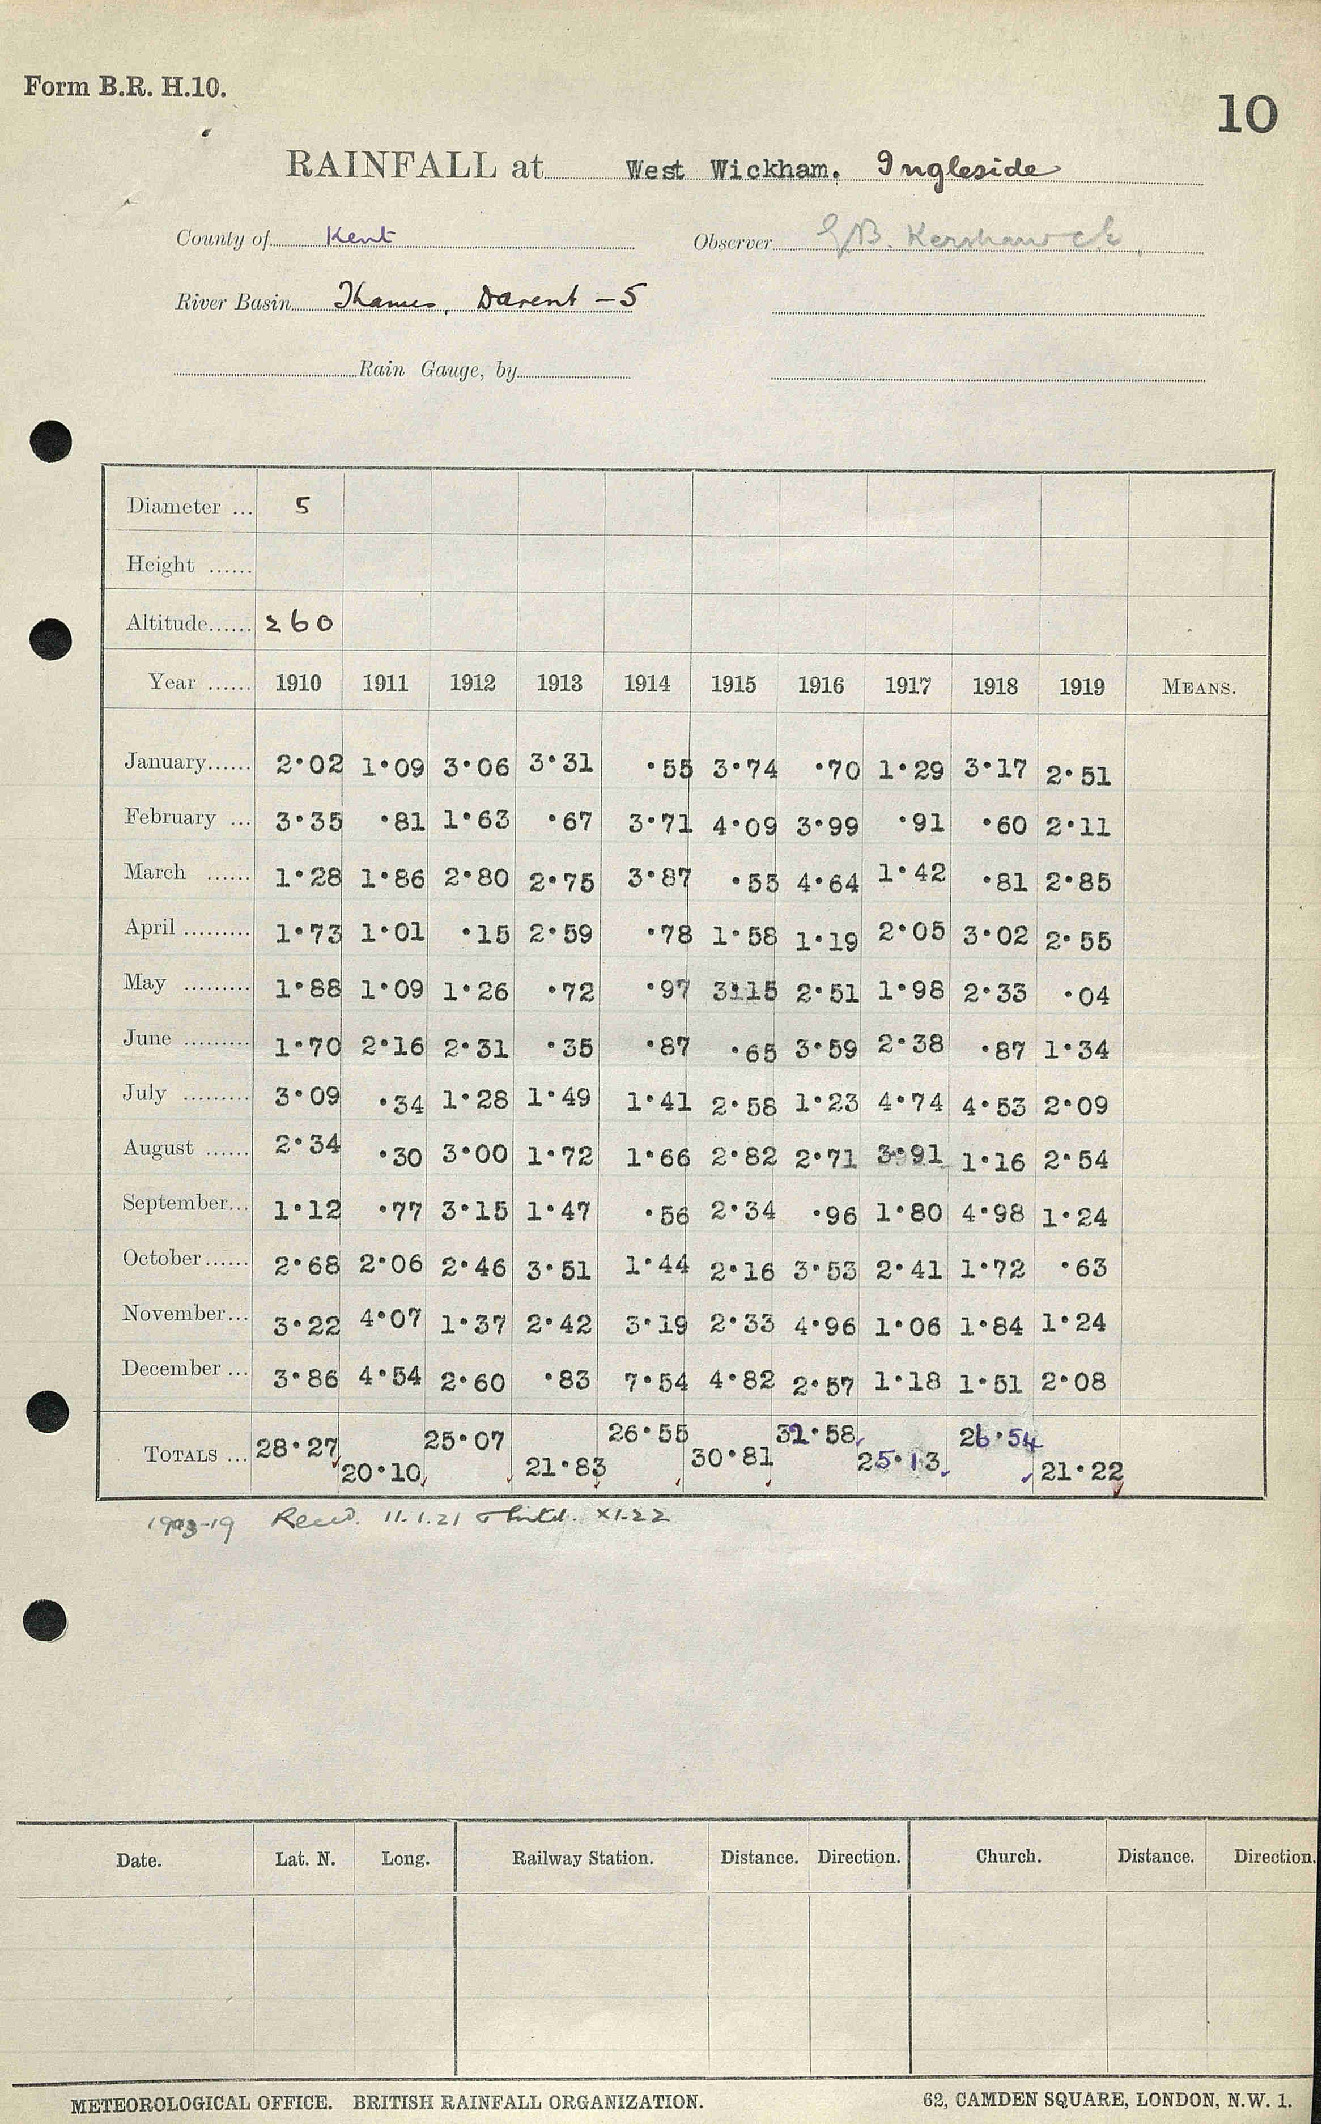 Form B.R. H.10.
10
RAINFALL at West Wickham. Ingleside
County of Kent Observer G.B. Kershaw
River Basin Thames, Darent - 5
Rain Gauge, by
Diameter ... 5
Height ......
Altitude...... 260
Year ...... 1910 1911 1912 1913 1914 1915 1916 1917 1918 1919 MEANS.
January...... 2·02 1·09 3·06 3·31 ·55 3·74 ·70 1·29 3·17 2·51
February ... 3·35 ·81 1·63 ·67 3·71 4·09 3·99 ·91 ·60 2·11
March ...... 1·28 1·86 2·80 2·75 3·87 ·55 4·64 1·42 ·81 2·85
April ......... 1·73 1·01 ·15 2·59 ·78 1·58 1·19 2·05 3·02 2·55
May ......... 1·88 1·09 1·26 ·72 ·97 3·15 2·51 1·98 2·33 ·04
June ......... 1·70 2·16 2·31 ·35 ·87 ·65 3·59 2·38 ·87 1·34
July ......... 3·09 ·34 1·28 1·49 1·41 2·58 1·23 4·74 4·53 2·09
August ...... 2·34 ·30 3·00 1·72 1·66 2·82 2·71 3·91 1·16 2·54
September... 1·12 ·77 3·15 1·47 ·56 2·34 ·96 1·80 4·98 1·24
October...... 2·68 2·06 2·46 3·51 1·44 2·16 3·53 2·41 1·72 ·63
November... 3·22 4·07 1·37 2·42 3·19 2·33 4·96 1·06 1·84 1·24
December ... 3·86 4·54 2·60 ·83 7·54 4·82 2·57 1·18 1·51 2·08
TOTALS ... 28·27 20·10 25·07 21·83 26·55 30·81 32·58 25·13 26·54 21·22
1903-19 Recd. 11.1.21 XI.22
Date. Lat. N. Long. Railway Station. Distance. Direction. Church. Distance. Direction.
METEOROLOGICAL OFFICE. BRITISH RAINFALL ORGANIZATION. 62, CAMDEN SQUARE, LONDON, N.W. 1.